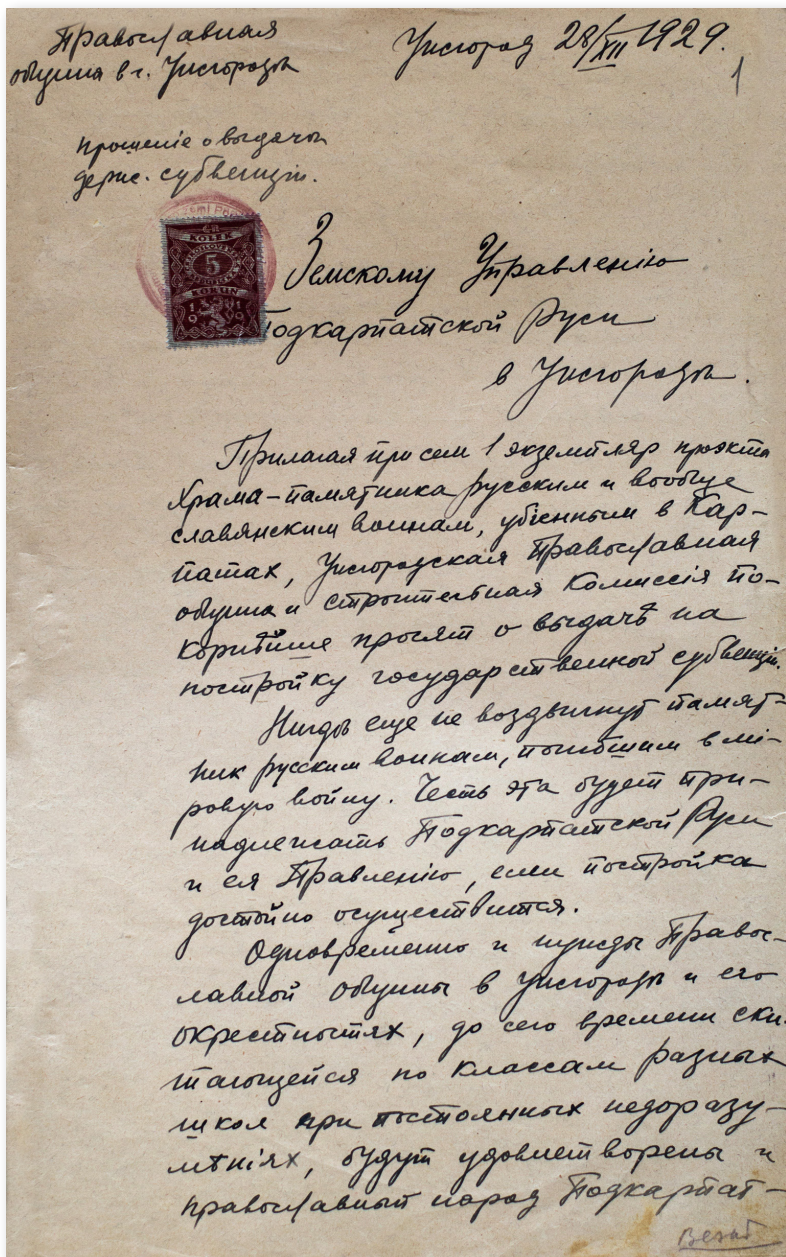 Православная
община в г. Ужгородѣ
Ужгород 28/XII 1929.
1
прошение о выдачѣ
держ. субвенціи.
KOLEK
5
KORUN
1919
Земскому Управленію
Подкарпатской Руси
в Ужгородѣ.
Прилагая при сем 1 экземпляр проэкта
Храма-памятника русским и вообще
славянским воинам, убіенным в Кар-
патах, Ужгородская Православная
община и строительная Комиссія по-
корнѣйше просят о выдачѣ на
постройку государственной субвенціи.
Нигдѣ еще не воздвигнут памят-
ник русским воинам, погибшим в мі-
ровую войну. Честь эта будет при-
надлежать Подкарпатской Руси
и ея Правленію, если постройка
достойно осуществится.
Одновременно и нужды Правос-
лавной общины в Ужгородѣ и его
окрестностях, до сего времени ски-
тающейся по классам разных
школ при постоянных недоразу-
мѣніях, будут удовлетворены и
православный народ Подкарпат-